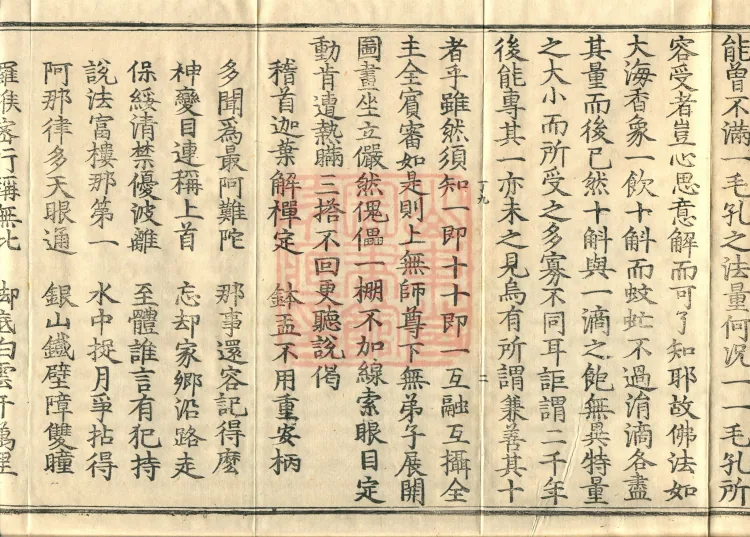 能曾不滿一毛孔之法量何況一一毛孔所
容受者豈心思意解而可了知耶故佛法如
大海香象一飲十斛而蚊虻不過涓滴各盡
其量而後已然十斛與一滴之飽無異特量
之大小而所受之多寡不同耳詎謂二千年
後能專其一亦未之見烏有所謂兼善其十
丁九 二
者乎雖然須知一即十十即一互融互攝全
主全賓審如是則上無師尊下無弟子展開
圖畫坐立儼然傀儡一棚不加線索眼目定
動肯遭熱瞞三搭不回更聽說偈
稽首迦葉解禪定 鉢盂不用重安柄
多聞為最阿難陀 那事還容記得麼
神變目連稱上首 忘却家鄉沿路走
保綏清禁優波離 至體誰言有犯持
說法富樓那第一 水中捉月爭拈得
阿那律多天眼通 銀山鐵壁障雙瞳
羅睺密行稱無比 脚底白雲千萬里